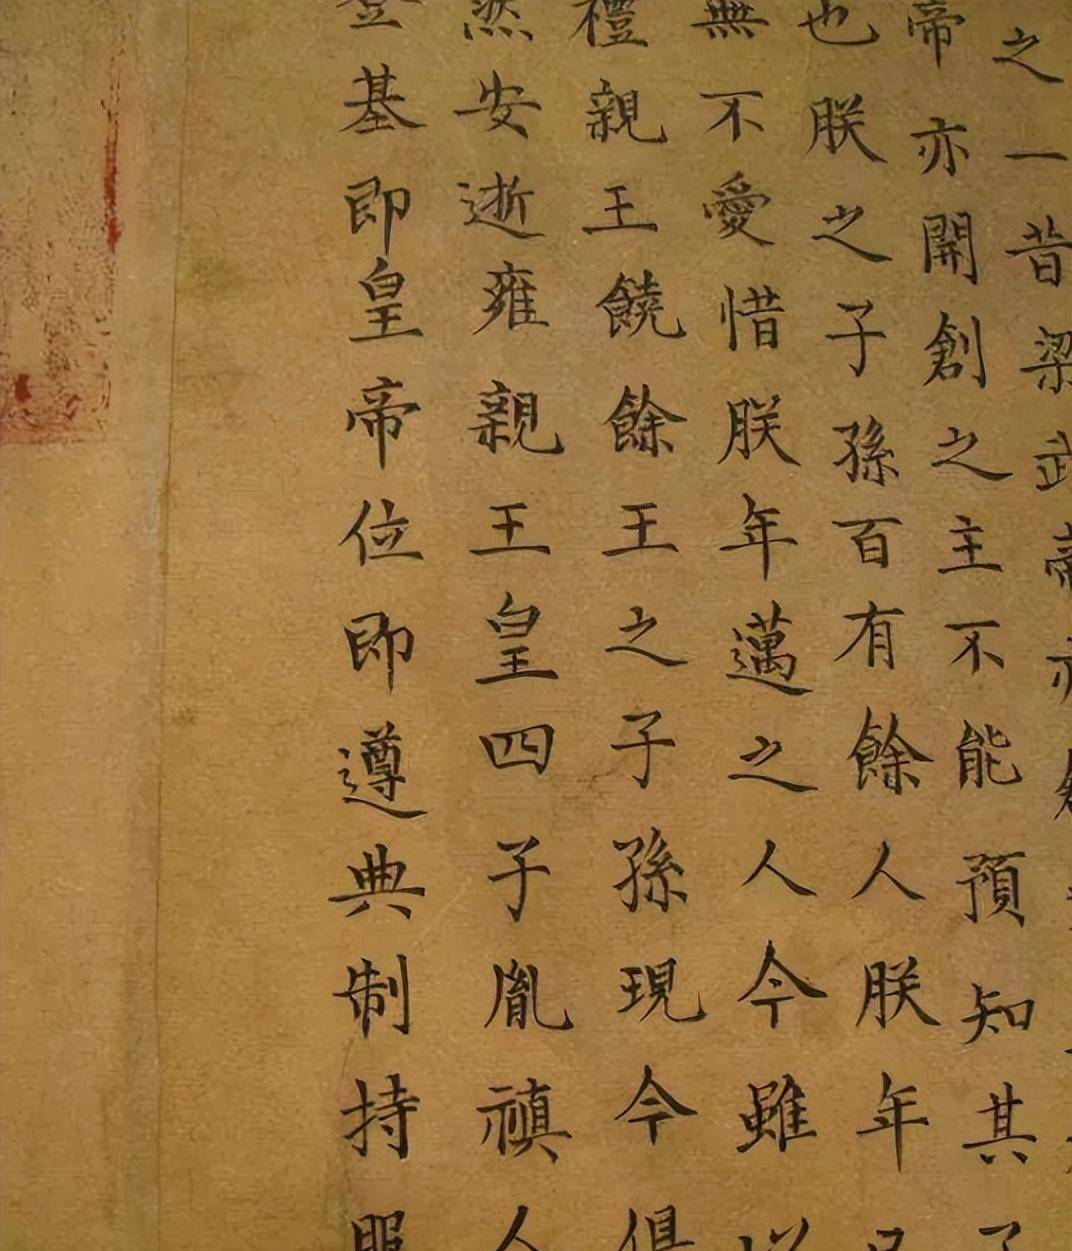 之一昔梁武帝亦
帝亦開創之主不能預知其子
也朕之子孫百有餘人朕年已
無不愛惜朕年邁之人今雖以
禮親王饒餘王之子孫現今俱
然安逝雍親王皇四子胤禛人
登基即皇帝位即遵典制持服